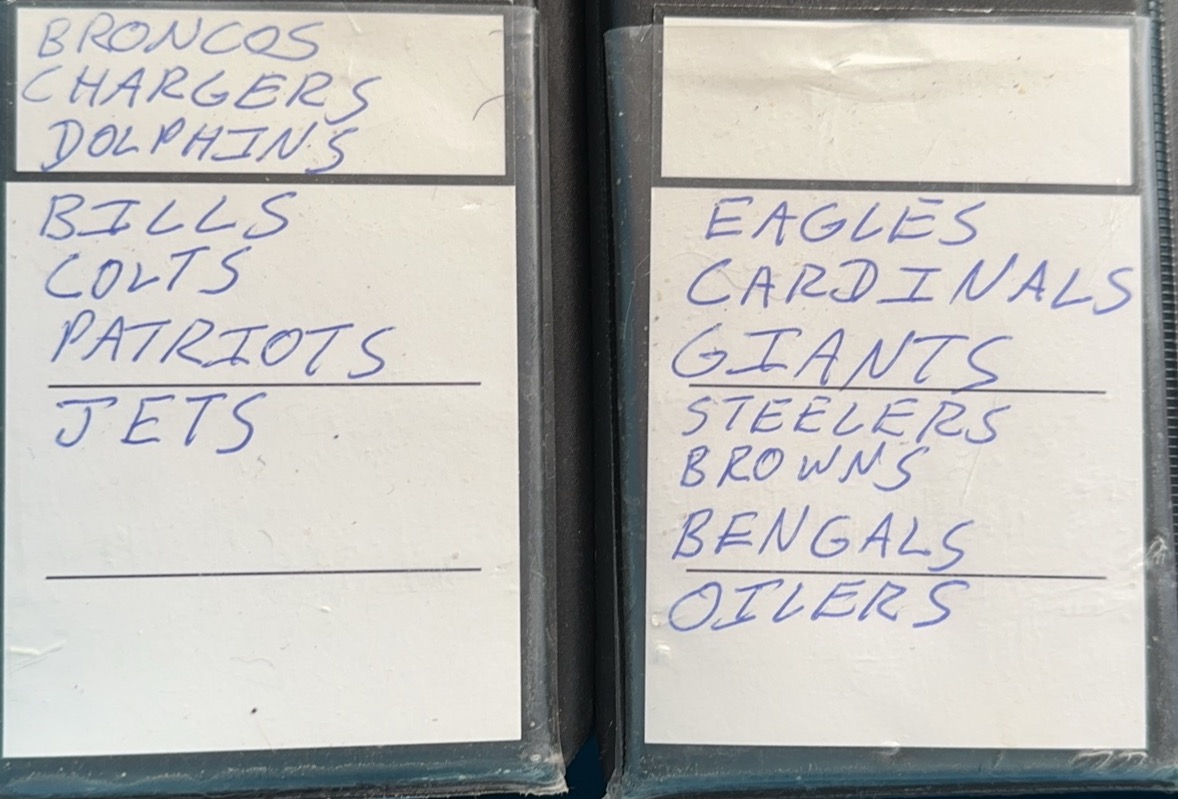 BRONCOS
CHARGERS
DOLPHINS
BILLS
COLTS
PATRIOTS
JETS
EAGLES
CARDINALS
GIANTS
STEELERS
BROWNS
BENGALS
OILERS